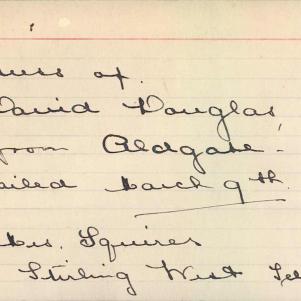 of
David Douglas,
from Aldgate.
March 9th.
Squires
Stirling West